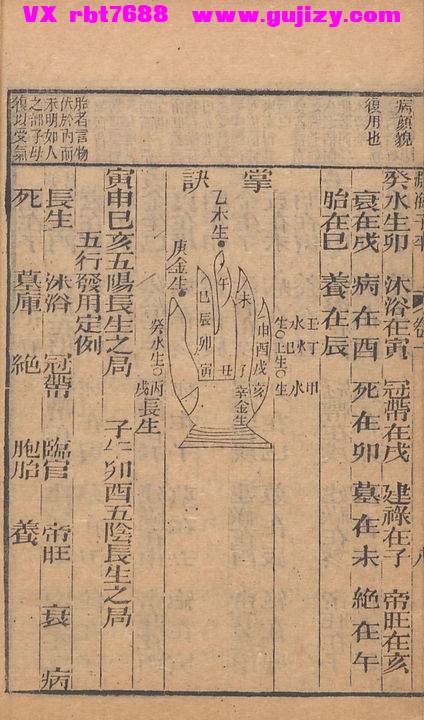 VX rbt7688 www.gujizy.com
病顏貌
復用也
胎者言物
依於內而
未明如人
之部子母
復以受氣
癸水生卯 沐浴在寅 冠帶在戌 建祿在子 帝旺在亥
衰在戌 病在酉 死在卯 墓在未 絕在午
胎在巳 養在辰
掌訣
乙木生
庚金生
癸水生
丙戊長生
午
巳
辰
卯
寅
未
丑
子
申
酉
戌
亥
辛金生
寅申巳亥五陽長生之局 子午卯酉五陰長生之局
五行發用定例
長生 沐浴 冠帶 臨官 帝旺 衰 病
死 墓庫 絕 胞胎 養